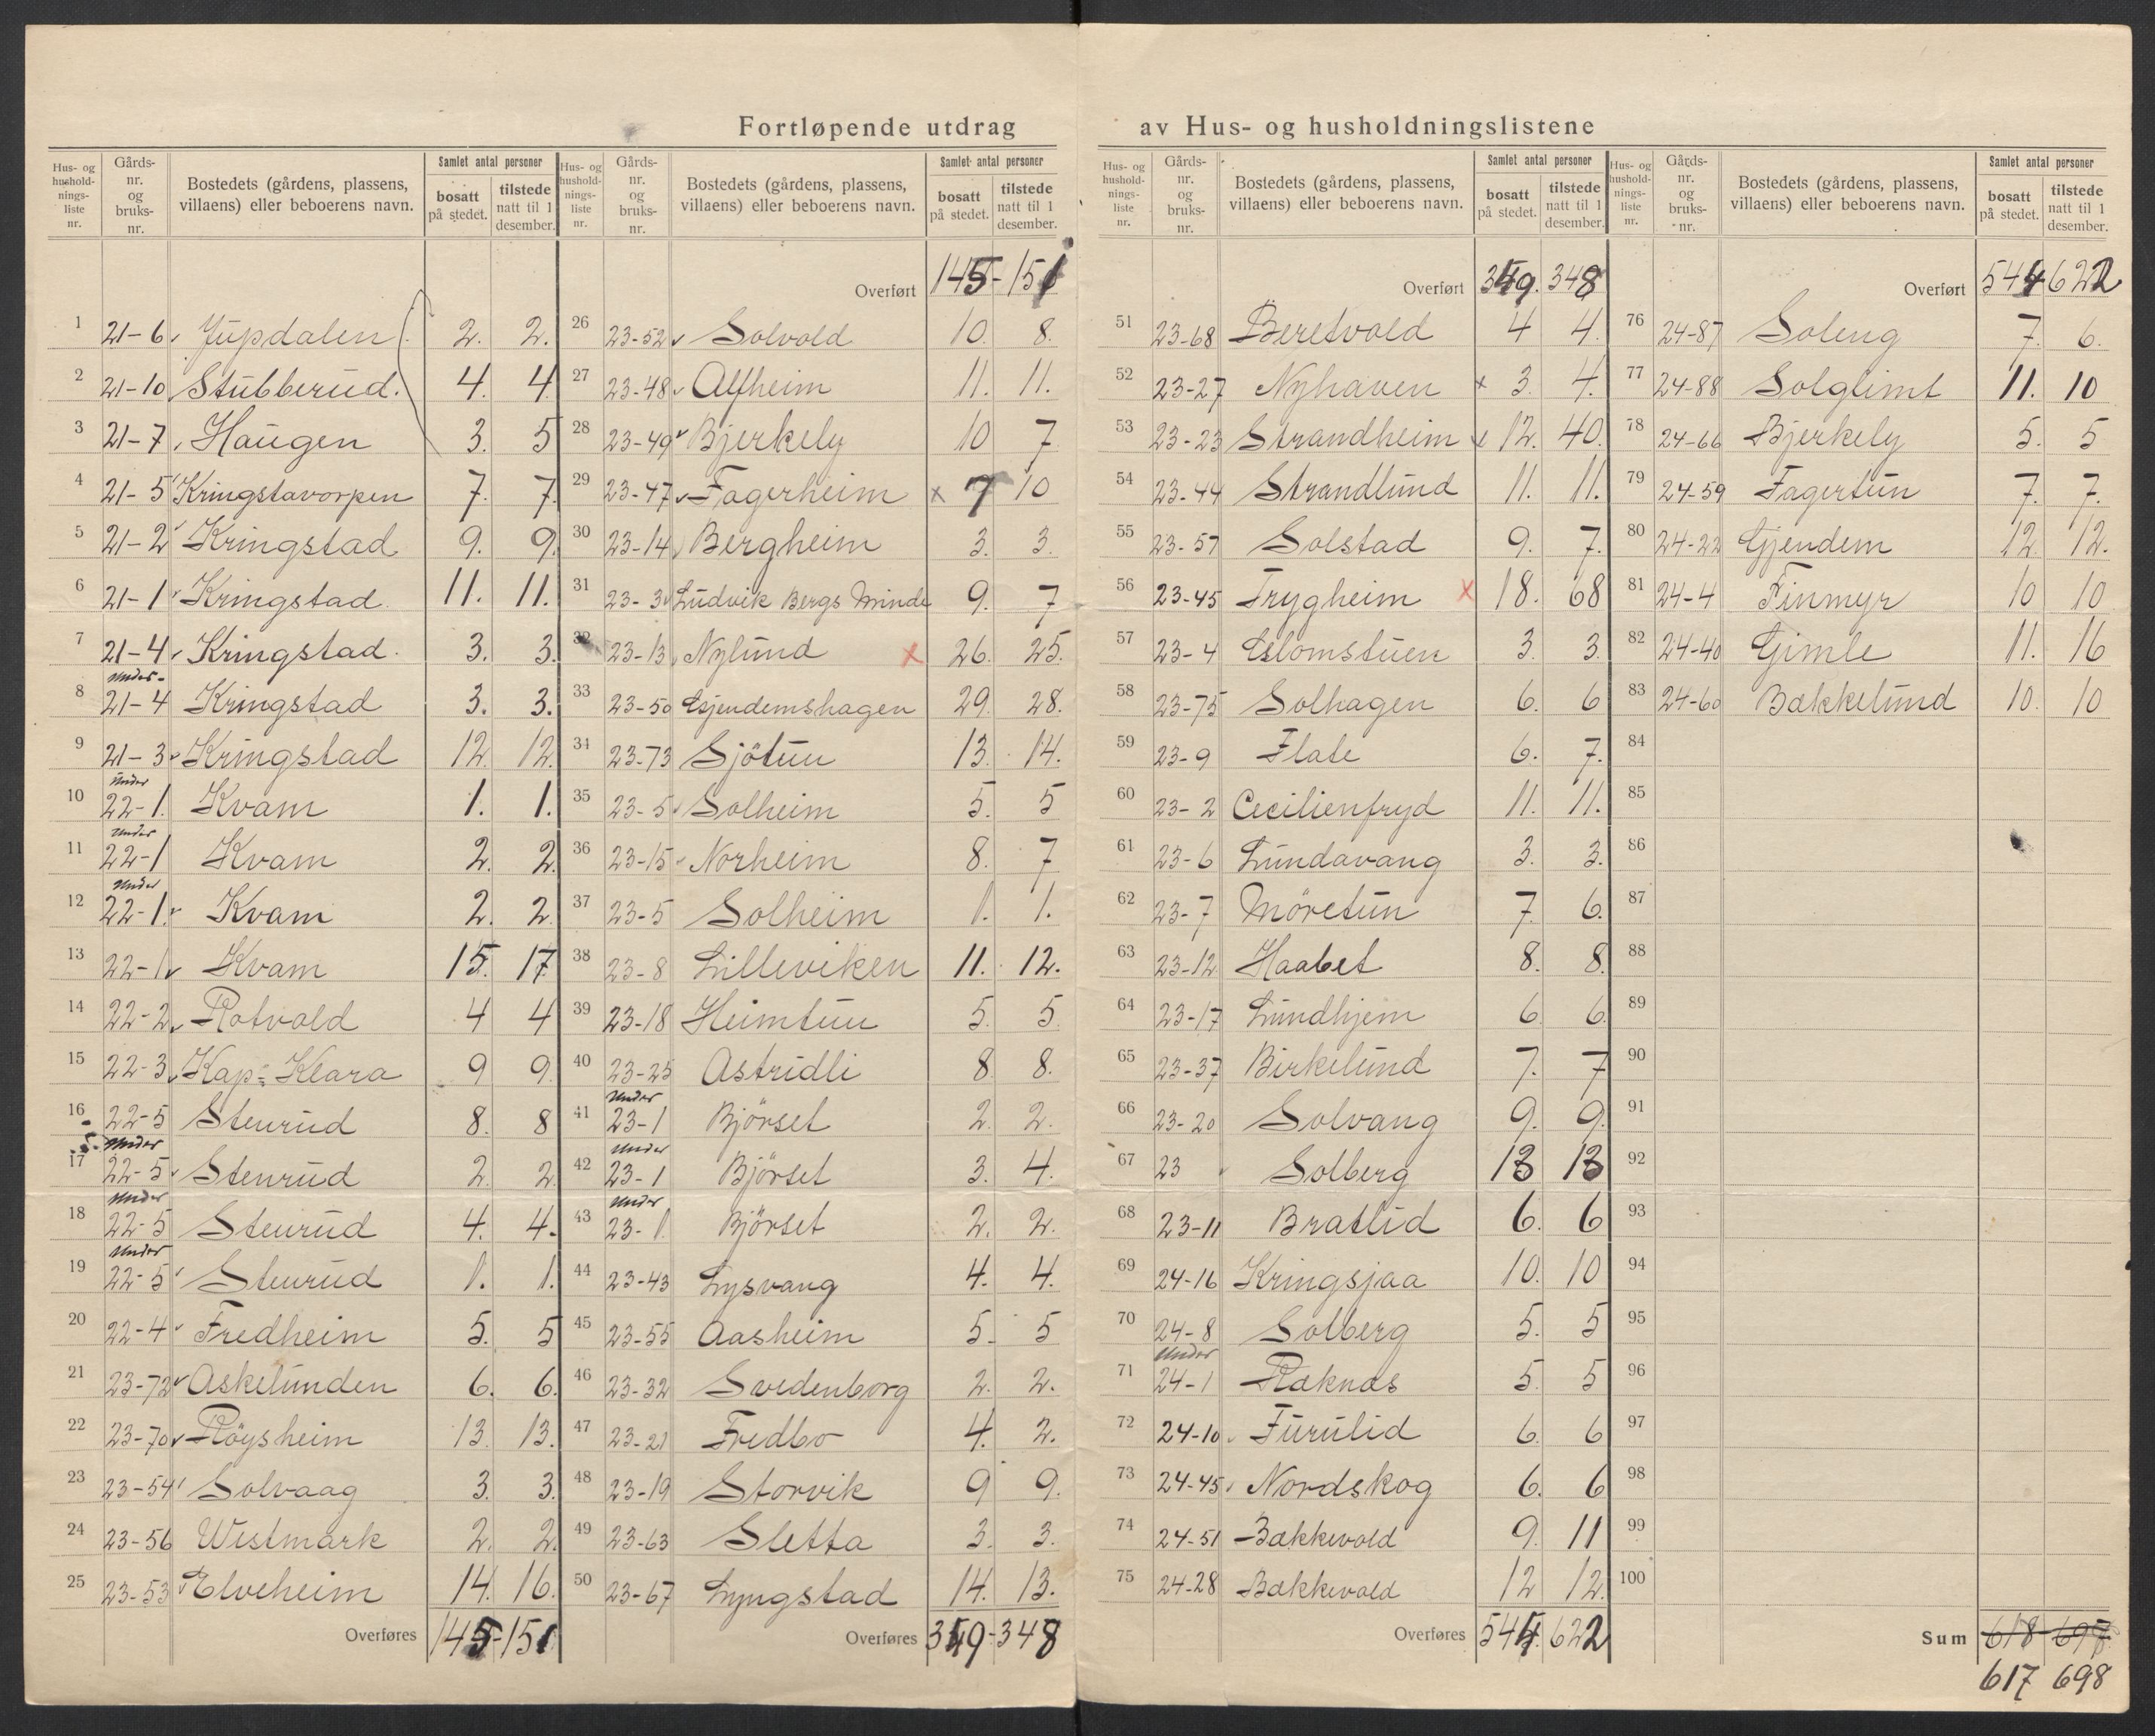 Fortløpende utdrag av Hus- og husholdningslistene
Hus- og hushold-nings-liste nr. | Gårds-nr. og bruks-nr. | Bostedets (gårdens, plassens, villaens) eller beboerens navn. | Samlet antal personer | bosatt på stedet. | tilstede natt til 1 desember.
1 21-6 Jupdalen 2. 2.
2 21-10 Stubberud. 4. 4
3 21-7 Haugen 3. 5
4 21-5 Kringstavorpen 7. 7.
5 21-2 Kringstad 9. 9.
6 21-1 Kringstad. 11. 11.
7 21-4 Kringstad. 3. 3.
8 Under 21-4 Kringstad 3. 3.
9 21-3 Kringstad 12. 12.
10 Under 22-1. Kvam 1. 1.
11 Under 22-1 Kvam 2. 2.
12 Under 22-1. Kvam 2. 2.
13 22-1 Kvam 15. 17
14 22-2 Rotvold 4 4
15 22-3 Kap: Klara 9 9.
16 22-5 Stenrud 8. 8
17 Under 22-5 Stenrud 2. 2.
18 Under 22-5 Stenrud 4. 4.
19 Under 22-5 Stenrud 1. 1.
20 22-4 Fredheim 5. 5
21 23-72 Askelunden 6. 6.
22 23-70 Röysheim 13. 13.
23 23-54 Solvaag 3. 3.
24 23-56 Westmark 2. 2.
25 23-53 Elveheim 14. 16.
Overføres 145-151
Hus- og hushold-nings-liste nr. | Gårds-nr. og bruks-nr. | Bostedets (gårdens, plassens, villaens) eller beboerens navn. | Samlet antal personer | bosatt på stedet. | tilstede natt til 1 desember.
Overført 145-151
26 23-52 Solvold 10. 8.
27 23-48 Alfheim 11. 11.
28 23-49 Bjerkely 10 7.
29 23-47 Fagerheim x 7 10
30 23-14 Bergheim 3. 3.
31 23-3 Ludvik Bergs Minde 9. 7
32 23-13 Nylund x 26. 25.
33 23-50 Gjendemshagen 29. 28.
34 23-73 Sjötun 13. 14.
35 23-5 Solheim 5. 5
36 23-15 Norheim 8. 7
37 23-5 Solheim 1. 1.
38 23-8 Lilleviken 11. 12.
39 23-18 Heimtun 5. 5.
40 23-25 Astridli 8 8.
41 Under 23-1 Björset 2. 2.
42 Under 23-1 Björset 3. 4.
43 Under 23-1. Björset 2. 2.
44 23-43 Lysvang 4. 4.
45 23-55 Aasheim 5. 5
46 23-32 Svedenborg 2. 2.
47 23-21 Fredbo 4. 2.
48 23-19 Storvik 9 9.
49 23-63 Sletta 3. 3.
50 23-67 Lyngstad 14. 13.
Overføres 349-348
Hus- og hushold-nings-liste nr. | Gårds-nr. og bruks-nr. | Bostedets (gårdens, plassens, villaens) eller beboerens navn. | Samlet antal personer | bosatt på stedet. | tilstede natt til 1 desember.
Overført 349. 348
51 23-68 Beretvold 4 4.
52 23-27 Nyhaven x 3. 4.
53 23-23 Strandheim x 12. 40.
54 23-44 Strandlund 11. 11.
55 23-57 Solstad 9. 7.
56 23-45 Trygheim x 18. 68
57 23-4 3. 3.
58 23-75 Solhagen 6. 6
59 23-9 Flate 6. 7.
60 23-2 Cecilienfryd 11. 11.
61 23-6 Lundavang 3. 3.
62 23-7 Möretun 7. 6.
63 23-12 Haabet 8. 8.
64 23-17 Lundhjem 6. 6.
65 23-37 Birkelund 7. 7
66 23-20 Solvang 9. 9.
67 23 Solberg 13 13
68 23-11 Bratlid 6. 6
69 24-16 Kringsjaa 10. 10
70 24-8 Solberg 5. 5
71 Under 24-1 Raknes 5. 5
72 24-10 Furulid 6. 6
73 24-45 Nordskog 6. 6
74 24-51 Bækkevold 9. 11
75 24-28 Bækkevold 12 12.
Overføres 544 622
Hus- og hushold-nings-liste nr. | Gårds-nr. og bruks-nr. | Bostedets (gårdens, plassens, villaens) eller beboerens navn. | Samlet antal personer | bosatt på stedet. | tilstede natt til 1 desember.
Overført 544 622
76 24-87 Soleng 7. 6.
77 24-88 Solglimt 11. 10
78 24-66 Bjerkely 5. 5
79 24-59 Fagertun 7. 7.
80 24-22 Gjendem 12. 12.
81 24-4 Finmyr 10 10
82 24-40 Gimle 11. 16
83 24-60 Bækkelund 10. 10
84
85
86
87
88
89
90
91
92
93
94
95
96
97
98
99
100
Sum 618-697
617 698